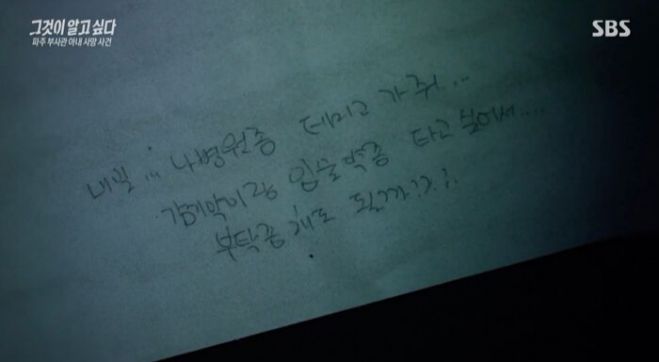 그것이 알고 싶다
파주 부사관 아내 사망 사건
SBS
내일... 나병원좀 데리고 가줘...
입술약좀 타고 싶어서....
부탁좀 해도 될까?.?.